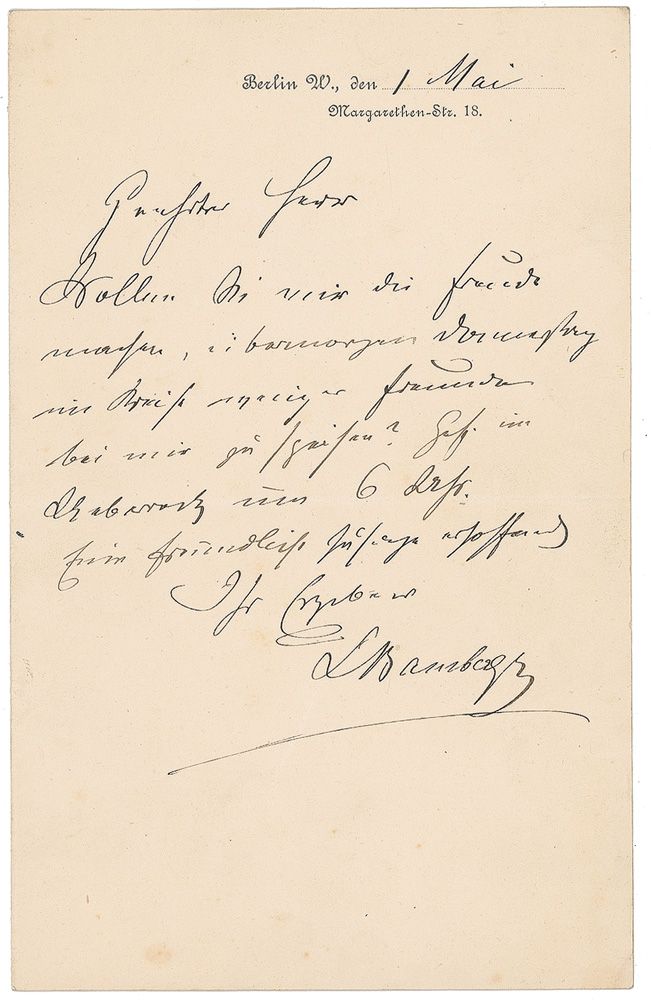 Berlin W., den 1 Mai
Margarethen-Str. 18.
Geehrter Herr
Wollen Sie mir die Freude
machen, übermorgen Donnerstag
im Kreise weniger Freunde
bei mir zu speisen? Gefl. im
Ueberrock um 6 Uhr.
Eine freundliche Zusage erhoffend
Ihr Ergebener
LBamberger